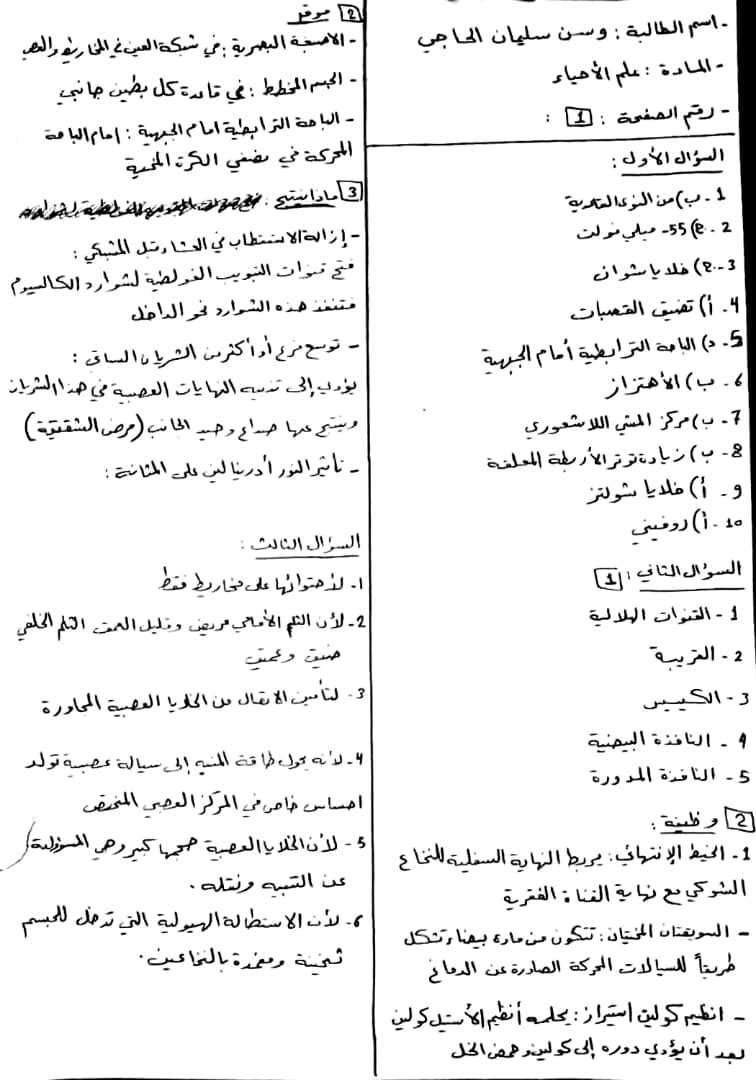 - اسم الطالبة : وسن سليمان الحاجي
- المادة : علم الأحياء
- رقم الصفحة : 1 :
السؤال الأول :
1 - ب) من النوى القاعدية
2 - ج) 55- ميلي فولت
3 - ج) خلايا شوان
4 - أ) تضيق القصبات
5 - د) الباحة الترابطية أمام الجبهية
6 - ب) الأهتزاز
7 - ب) مركز المشي اللاشعوري
8 - ب) زيادة توتر الأربطة المعلقة
9 - أ) خلايا شولتز
10 - أ) روفيني
السؤال الثاني : 1
1 - القنوات الهلالية
2 - القريبة
3 - الكييس
4 - النافذة البيضية
5 - النافذة المدورة
2 وظيفة :
1 - الخيط الإنتهائي : يربط النهاية السفلية للنخاع
الشوكي مع نهاية القناة الفقرية
- السويقتان المخيتان : تتكون من مادة بيضاء تشكل
طريقاً للسيالات المحركة الصادرة عن الدماغ
- انظيم كولين استيراز : يحلمه أنظيم الأستيل كولين
بعد أن يؤدي دوره إلى كولين وحمض الخل
2 موقع
- الاصبغة البصرية : في شبكة العين في المخاريط والعصي
- الجسم المخطط : في قاعدة كل بطين جانبي
- الباحة الترابطية امام الجبهية : إمام الباحة
المحركة في نصفي الكرة المخية
3 ماذا ينتج :
- إزالة الاستقطاب في الغشاء قبل المشبكي :
فتح قنوات التبويب الفولطية لشوارد الكالسيوم
فتنفذ هذه الشوارد نحو الداخل
- توسع فرع أو أكثر من الشريان السباتي :
يؤدي إلى تنبيه النهايات العصبية في هذا الشريان
وينتج عنها صداع وحيد الجانب (مرض الشقيقة)
- تأثير النور أدرينالين على المثانة :
السؤال الثالث :
1 - لأحتوائها على مخاريط فقط
2 - لأن الثلم الأمامي عريض وقليل العمق الثلم الخلفي
ضيق وعميق
3 - لتأمين الاتصال من الخلايا العصبية المجاورة
4 - لأنه يحول طاقة المنبه إلى سيالة عصبية تولد
احساس خاص في المركز العصبي المختص
5 - لأن الخلايا العصبية حجمها كبير وهي المسؤولية
عن التنبيه ونقله .
6 - لأن الاستطالة الهيولية التي تدخل للجسم
ثخينة ومغمدة بالنخاعين .